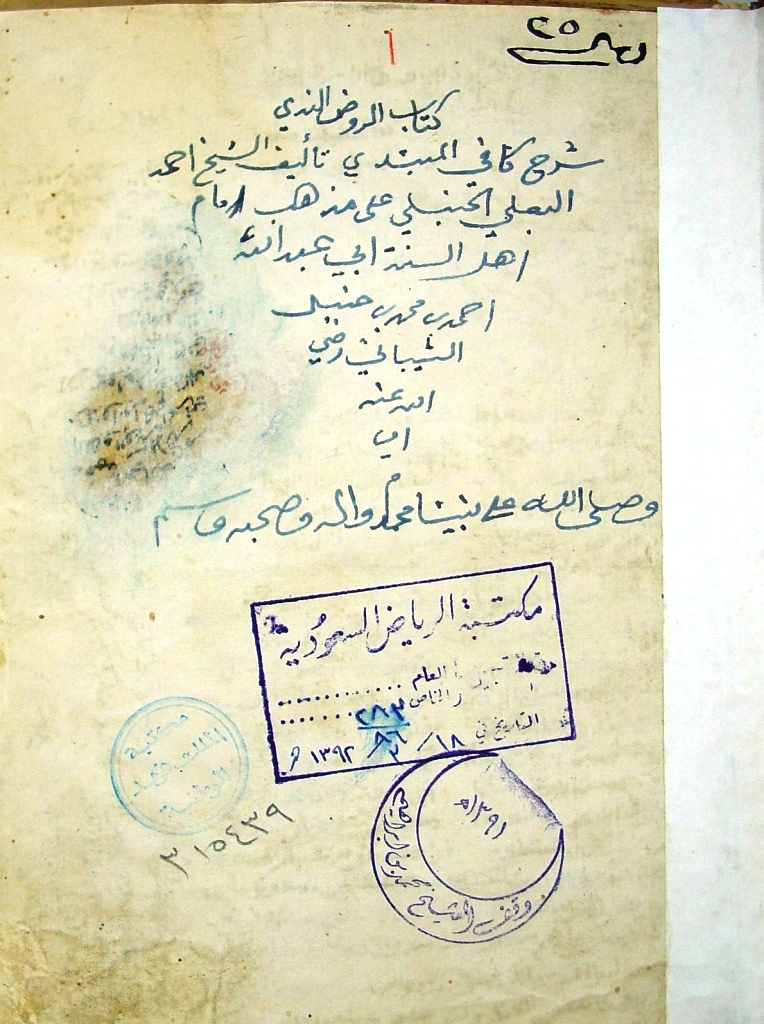 ٢٥
كتاب الروض الندي
شرح كافي المبتدي تأليف الشيخ احمد
البعلي الحنبلي على مذهب امام
اهل السنة ابي عبد الله
احمد بن محمد بن حنبل
الشيباني رضي
الله عنه
وصلى الله على نبينا محمد واله وصحبه وسلم
مكتبة الرياض السعودية
العام ............
والخاص ............
٢٨٣
٨٦
التاريخ في ١٨ / ٣ / ١٣٩٢ ه
مكتبة
الملك فهد
الوطنية
٣١٥٤٣٩
١٣٩١ه
وقف الشيخ محمد بن ابراهيم